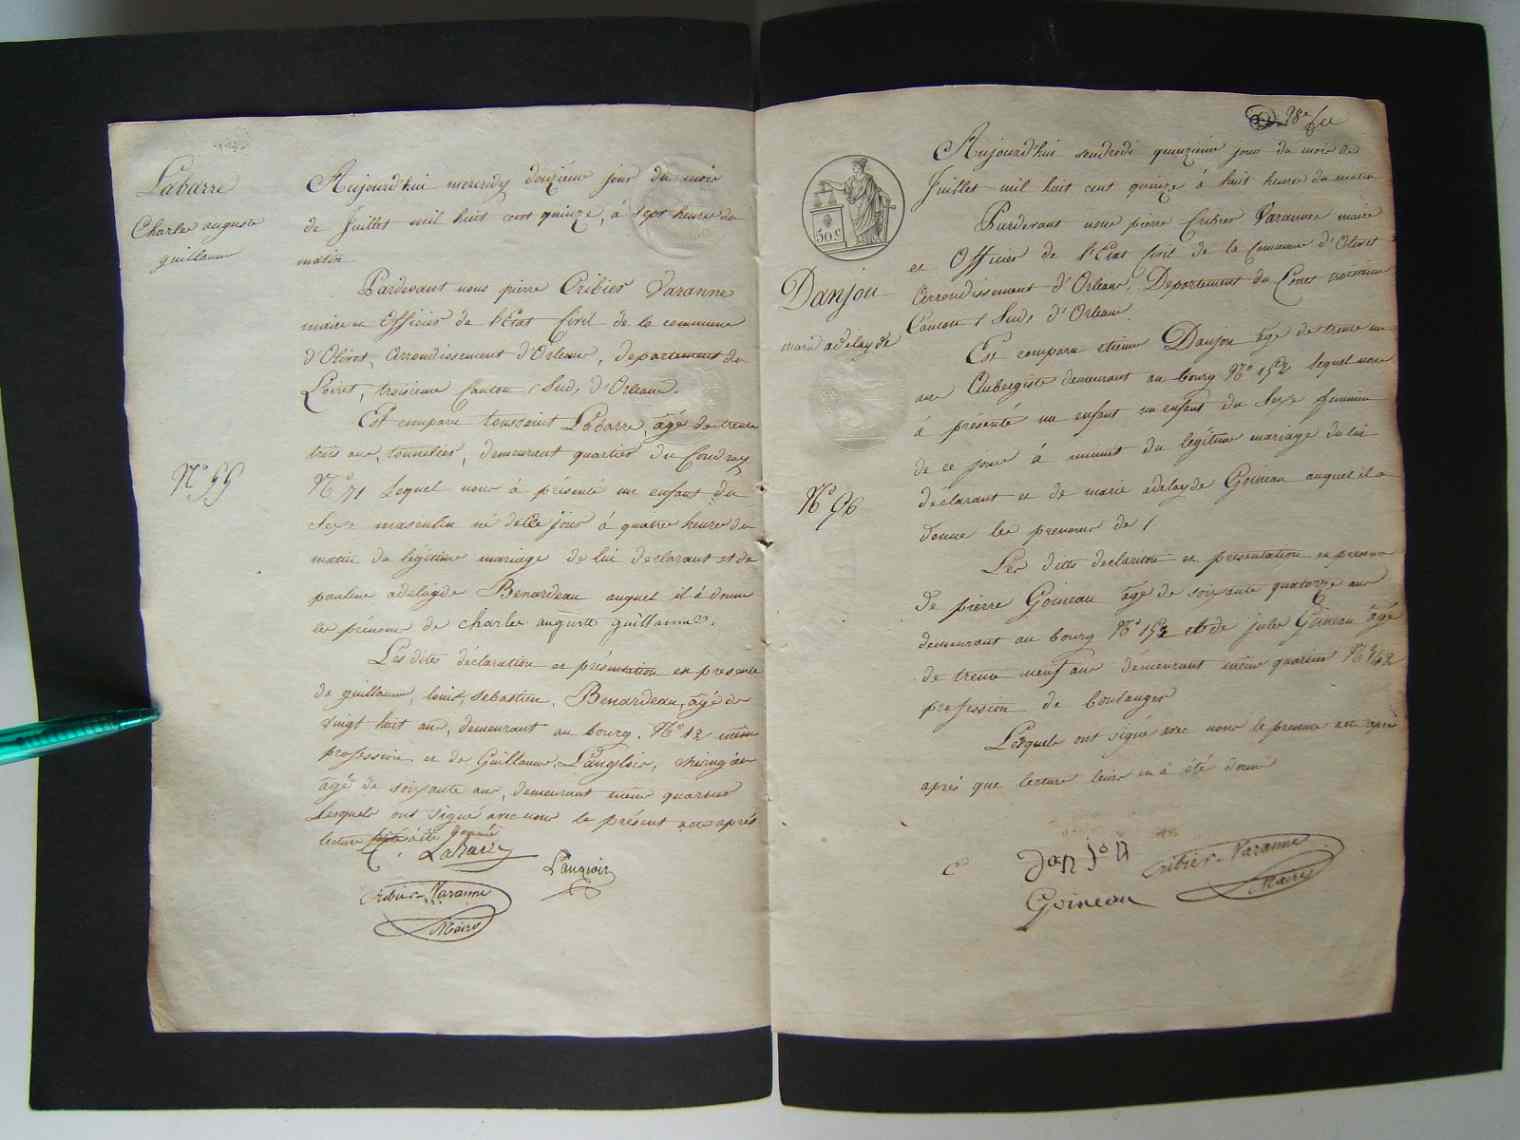 Labarre
Charle auguste
guillaume
Aujourd'hui mercredy douzieme jour du mois
de Juillet mil huit cent quinze, à sept heures du
matin
Pardevant nous pierre Cribier Varanne
maire et Officier de l'Etat Civil de la commune
d'Olivet, Arrondissement d'Orleans, departement du
Loiret, troisieme Canton (Sud) d'Orleans.
Est comparu toussaint Labarre, âgé de trente
trois ans, tonnelier, demeurant quartier du Coudray
N° 71 Lequel nous à présenté un enfant du
Sexe masculin né de ce jour à quatre heures du
matin du légitime mariage de lui declarant et de
pauline adelayde Benardeau auquel il à donné
les prénoms de charle auguste guillaume.
Les dites déclaration et présentation en presence
de guillaume, louis, sebastien, Benardeau, âgé de
vingt huit ans, demeurant au bourg, N° 12 même
profession et de Guillaume Langlois, chirugien
âgé de soixante ans, demeurant même quartier
Lesquels ont signé avec nous le présent acte après
lecture faite à été donné
N° 95
Labarre
Cribier-Varanne
Maire
98e
50 C
Danjou
marie adelayde
N° 96
Aujourd'hui vendredi quinzieme jour du mois de
Juillet mil huit cent quinze à huit heures du matin
Pardevant nous pierre Cribier Varanne maire
et Officier de l'Etat Civil de la Commune d'Olivet
Arrondissement d'Orleans, Departement du Loiret troisieme
Canton (Sud) d'Orleans
Est comparu etienne Danjou âgé de trente un
ans Aubergiste demeurant au bourg N° 152 lequel nous
à présenté un enfant un enfant du Sexe feminin
de ce jour à minuit du légitime mariage de lui
déclarant et de marie adelayde Goineau auquel il a
donné les prenoms de (
Les dittes declaration et presentation en presence
de pierre Goineau âgé de soixante quatorze ans
demeurant au bourg N° 152 et de jules Goineau âgé
de trente neuf ans demeurant même quartier N°
profession de boulanger
Lesquels ont signé avec nous le present acte après
après que lecture leur en à été donné
Danjou
Goineau
Cribier-Varanne
Maire